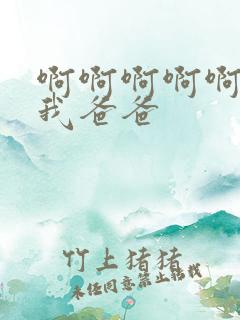 啊啊啊啊啊
我爸爸
竹上猪猪
未经同意禁止搭我